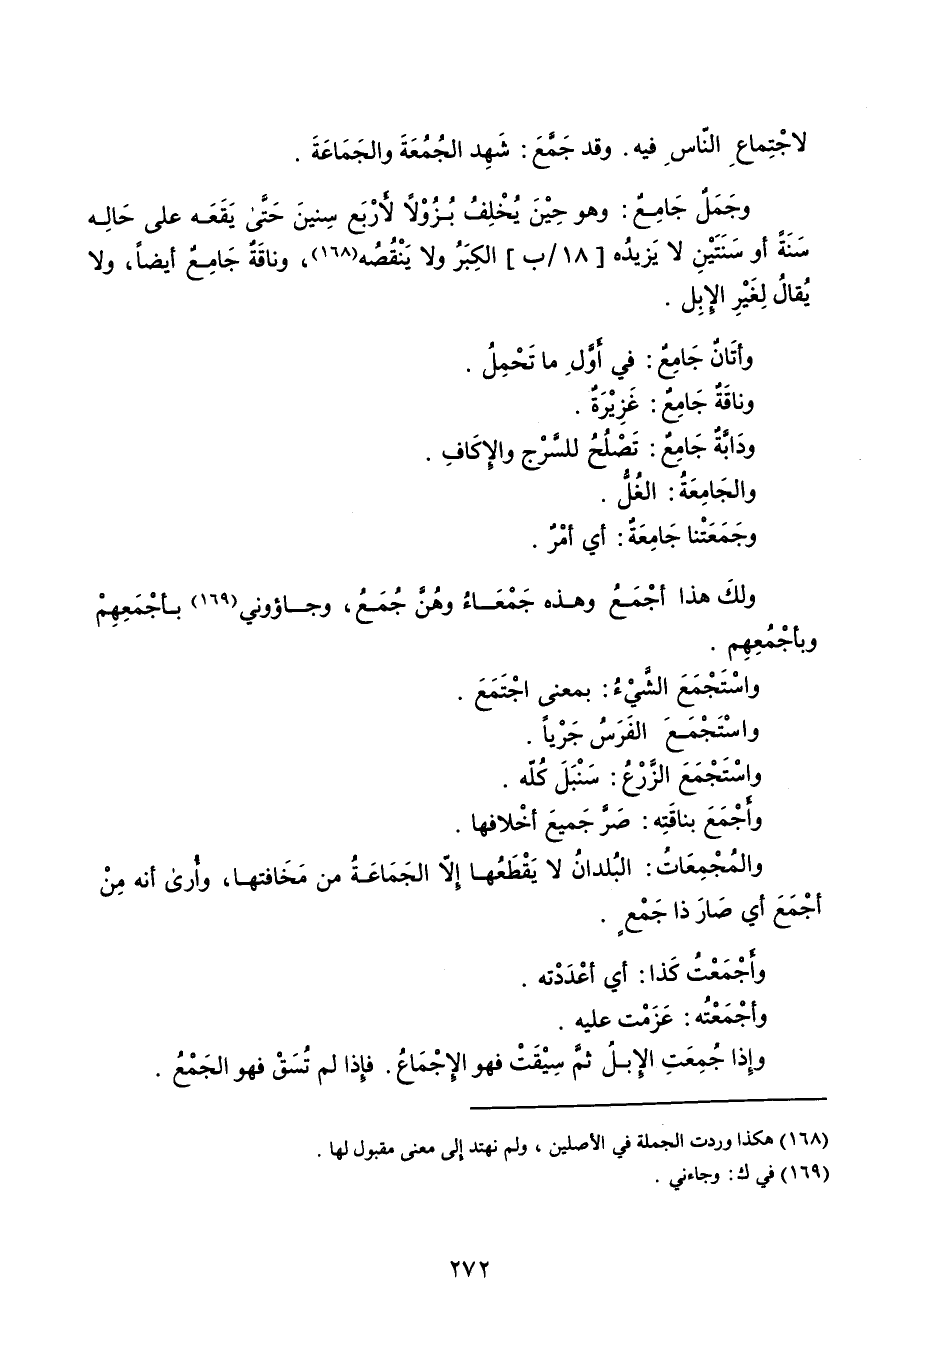 لاجْتِماعِ النّاسِ فيه. وقد جَمَّعَ: شَهِد الجُمُعَةَ والجَمَاعَةَ.
وجَمَلٌ جَامِعٌ: وهو حِيْنَ يُخْلِفُ بُزُوْلاً لأَرْبَع سِنينَ حَتَّىٰ يَقَعَه على حَالِه
سَنَةً أو سَنَتَيْنِ لا يَزيدُه [١٨/ب] الكِبَرُ ولا يَنْقُصُه(١٦٨)، وناقَةٌ جَامِعٌ أيضاً، ولا
يُقالُ لِغَيْرِ الإِبِل.
وأتَانٌ جَامِعٌ: في أَوَّلِ ما تَحْمِلُ.
وناقَةٌ جَامِعٌ: غَزِيْرَةٌ.
ودَابَّةٌ جَامِعٌ: تَصْلُحُ للسَّرْج والإِكَافِ.
والجَامِعَةُ: الغُلُّ.
وجَمَعَتْنا جَامِعَةٌ: أي أمْرٌ.
ولكَ هذا أجْمَعُ وهذه جَمْعَاءُ وهُنَّ جُمَعُ، وجاؤوني(١٦٩) بأجْمَعِهِمْ
وبأجْمُعِهِم.
واسْتَجْمَعَ الشَّيْءُ: بمعنى اجْتَمَعَ.
واسْتَجْمَعَ الفَرَسُ جَرْياً.
واسْتَجْمَعَ الزَّرْعُ: سَنْبَلَ كُلّه.
وأَجْمَعَ بناقَتِه: صَرَّ جَميعَ أخْلافها.
والمُجْمِعَاتُ: البُلدانُ لا يَقْطَعُها إلّا الجَمَاعَةُ من مَخَافتها، وأُرىٰ أنه مِنْ
أجْمَعَ أي صَارَ ذا جَمْعٍ.
وأَجْمَعْتُ كَذا: أي أعْدَدْته.
وأجْمَعْتُه: عَزَمْت عليه.
وإذا جُمِعَتِ الإِبلُ ثمَّ سِيْقَتْ فهو الإِجْمَاعُ. فإذا لم تُسَقْ فهو الجَمْعُ.
(١٦٨) هكذا وردت الجملة في الأصلين، ولم نهتد إلى معنى مقبول لها.
(١٦٩) في ك: وجاءني.
٢٧٢